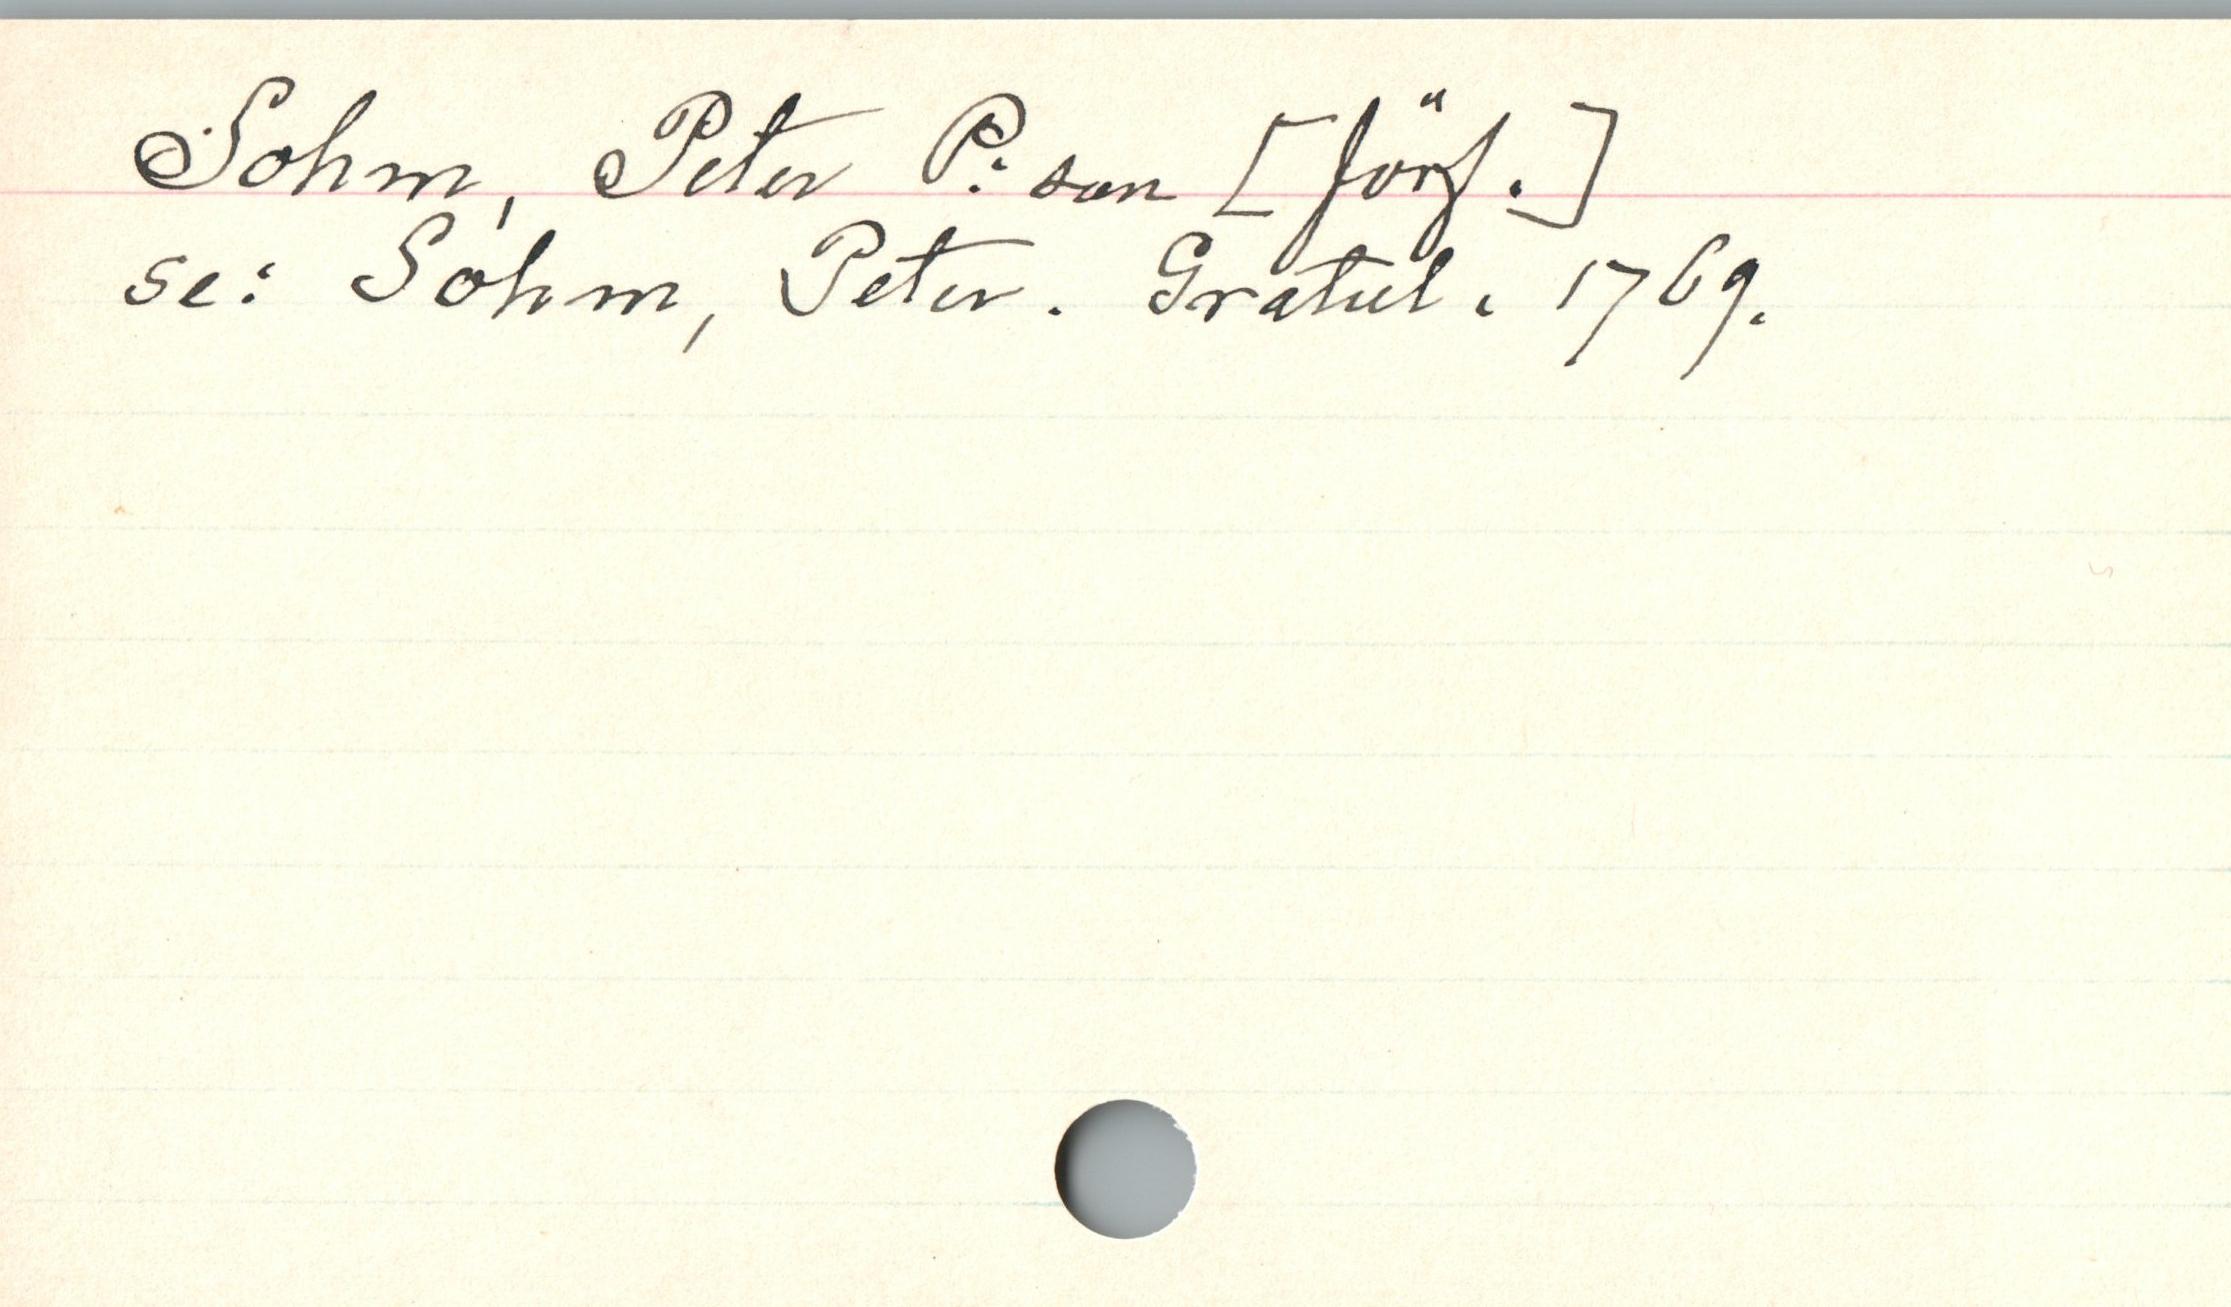 Sohm, Peter P:son [förf.]
se: Sohm, Peter. Gratul. 1769.